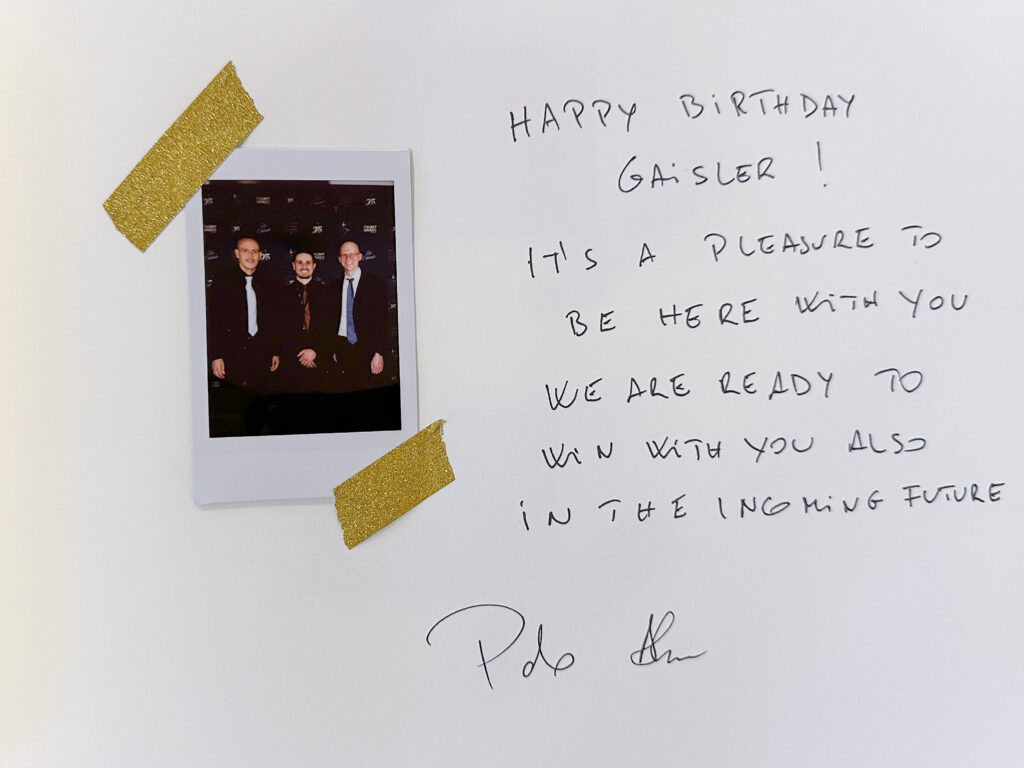 HAPPY BiRTHDAY
GAiSLER !
IT'S A PLEASURE TO
BE HERE WiTH YOU
WE ARE READY TO
WiN WiTH YOU ALSO
iN THE INCOMiNG FUTURE